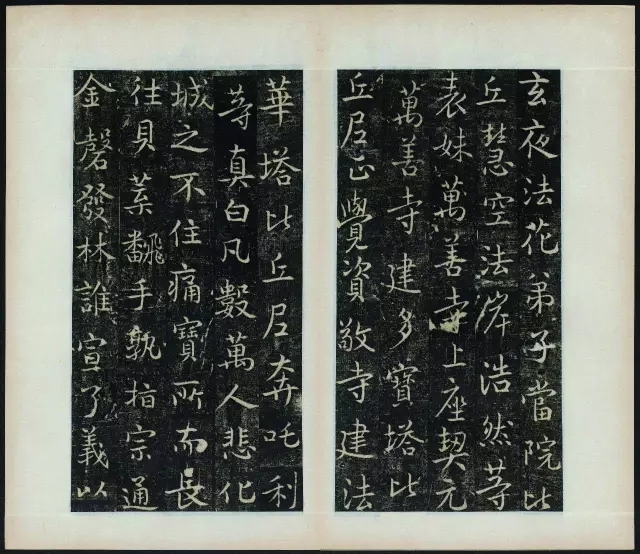 玄夜法花弟子當院比
丘慧空法岸浩然等
表妹萬善寺上座契元
萬善寺建多寶塔比
丘尼正覺資敬寺建法
華塔比丘尼奔吒利
等真白凡數萬人悲化
城之不住痛寶所而長
往貝葉翻手孰指宗通
金磬發林誰宣了義以